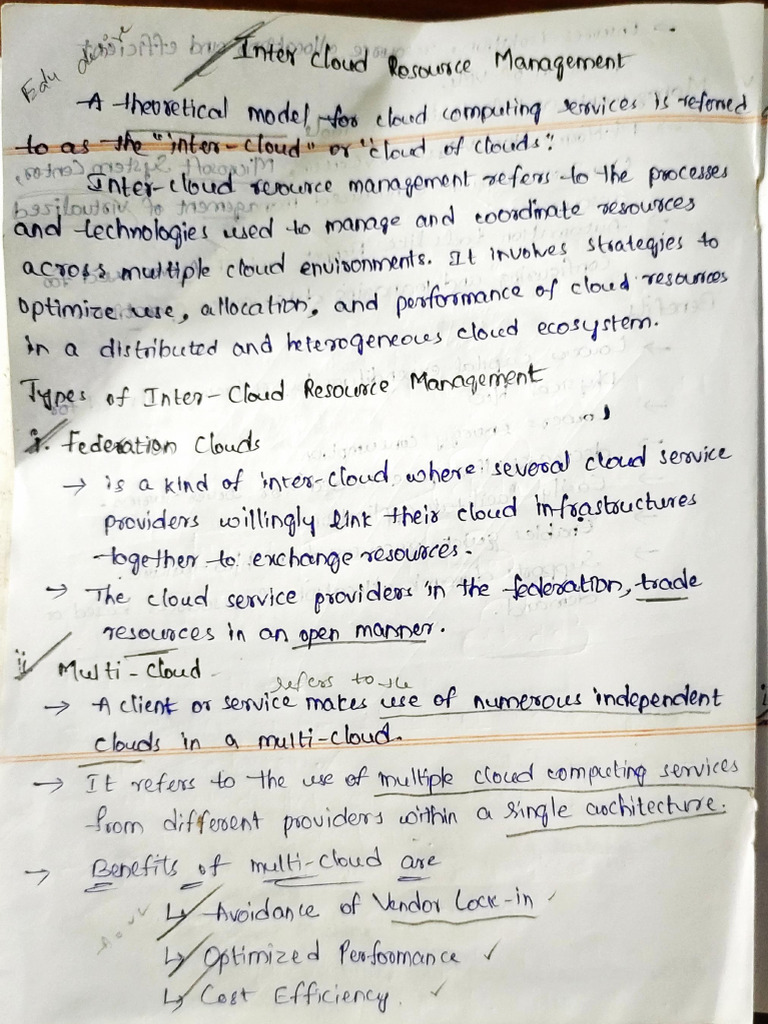 Edu desire
Inter Cloud Resource Management
A theoretical model, for cloud computing services is referred
to as the "inter-cloud" or "cloud of clouds".
Inter-cloud resource management refers to the processes
and technologies used to manage and coordinate resources
across multiple cloud environments. It involves strategies to
optimize use, allocation, and performance of cloud resources
in a distributed and heterogeneous cloud ecosystem.
Types of Inter-Cloud Resource Management
i. Federation Clouds
→ is a kind of inter-cloud where several cloud service
providers willingly link their cloud infrastructures
together to exchange resources.
→ The cloud service providers in the federation, trade
resources in an open manner.
ii Multi-Cloud
refers to the
→ A client or service makes use of numerous independent
clouds in a multi-cloud.
→ It refers to the use of multiple cloud computing services
from different providers within a single architecture.
→ Benefits of multi-cloud are
↳ Avoidance of Vendor Lock-in ✓
↳ Optimized Performance ✓
↳ Cost Efficiency. ✓